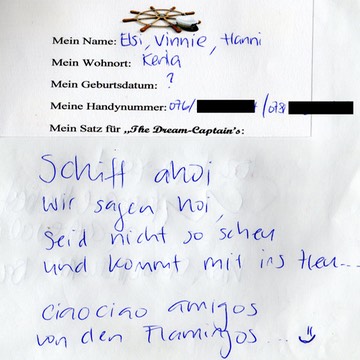 Mein Name: Elsi, Vinnie, Hanni
Mein Wohnort: Kerla
Mein Geburtsdatum: ?
Meine Handynummer: 076/ /078
Mein Satz für „The Dream-Captain's:
Schiff ahoi
wir sagen hoi,
seid nicht so scheu
und kommt mit ins Heu...
ciao ciao amigos
von den Flamingos...